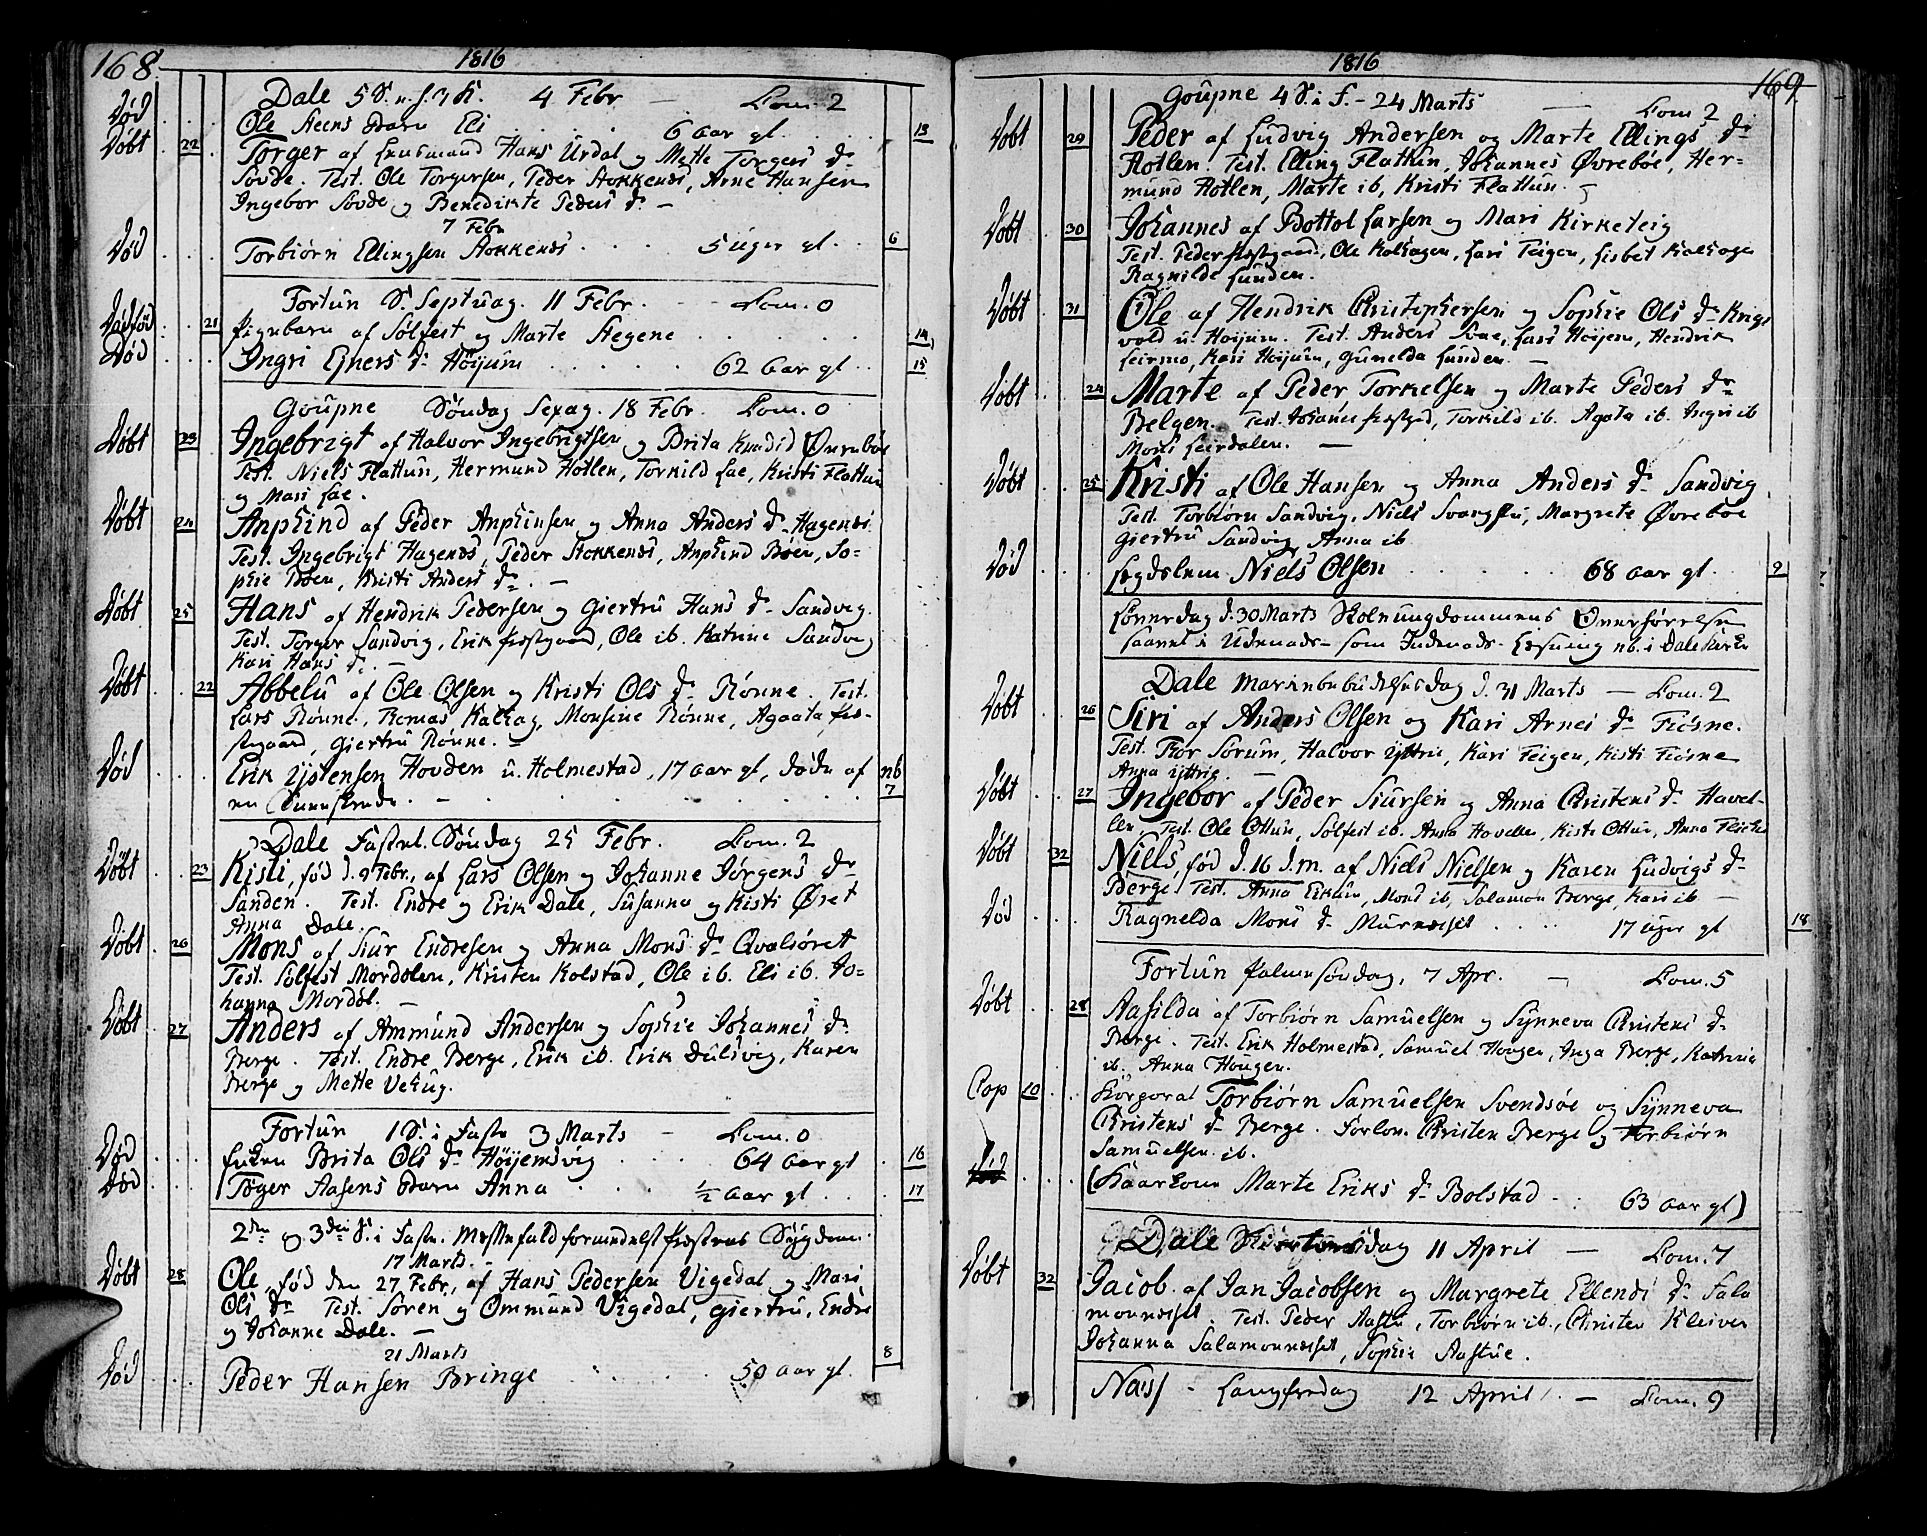 168
1816
Dale 5 S. n. f. 3 K. 4 Febr. — Com. 2
Død Ole Steens Barn Eli . . . 6 Aar gl. . . 13
Døbt 22 Torger af Huusmand Hans Urdal og Mette Torgers D.
Sovde. Test. Ole Torgersen, Peder Stokkenæs, Arne Hansen
Ingebor Sovde og Benedikte Peders D. —
7 Febr.
Død Torbiørn Ellingsen Stokkenæs . . . . 5 Uger gl. . . 6
Fortun S. Septuag. 11 Febr. — Com. 0
Dødfød 21 Pigebarn af Sølfest og Marte Stegene . . . 14
Død Ingri Ejners D. Höijum . . . . . 62 Aar gl. . . 15
Goupne Søndag Sexag. 18 Febr. Com. 0
Døbt 23 Ingebrigt af Halvor Ingebrigtsen og Brita Knuds D. Øvreboe
Test. Niels Flattun, Hermund Hotlen, Torkild Lae, Kristi Flattun
og Mari Lae.
Døbt 24 Anphind af Peder Anphinsen og Anna Anders D. Hagenæs
Test. Ingebrigt Hagenæs, Peder Stokkenæs, Anphind Boen, So=
phie Boen, Kristi Anders D. —
Døbt 25 Hans af Hendrik Pedersen og Giertru Hans D. Sandvig
Test. Torger Sandvig, Erik Præstgaard, Ole ib. Katrine Sandvig
Kari Hans D. —
Døbt 22 Abbelu af Ole Olsen og Kristi Ols D. Rönne. Test.
Lars Rönne, Thomas Kalhag, Monsine Rönne, Agaata Præ-
stgaard, Giertru Rönne. —
Død Erik Ystensen Hovden u. Holmestad, 17 Aar gl, døde af nb
en . . . 7
Dale Fastel. Søndag 25 Febr. Com. 2
Døbt 23 Kisti, fød d. 9 Febr., af Lars Olsen og Johanne Jørgens D.
Sanden. Test. Endre og Erik Dale, Susanne og Kisti Øret
Anna Dale.
Døbt 26 Mons af Siur Endresen og Anna Mons D. Qvalsøret
Test. Solfest Mordolen, Kristen Kolstad, Ole ib. Eli ib. Jo=
hanna Mordøl. —
Døbt 27 Anders af Ammund Andersen og Sophie Johannes D.
Berge. Test. Endre Berge, Erik ib. Erik Dulsvig, Karen
Berge og Mette Vehug.
Fortun 1 S. i Faste 3 Marts — Com. 0
Død Enken Brita Ols D. Höijemsvig . . . 64 Aar gl . 16
Død Toger Aasens Barn Anna . . . ½ Aar gl . . . 17
2den og 3die S. i Faste. Messefald formedelst Præstens Sygdom.
17 Marts. —
Døbt 28 Ole, fød den 27 Febr., af Hans Pedersen Vigedal og Mari
Ols D. Test. Søren og Ommund Vigedal, Giertru, Endre
og Johanne Dale. —
21 Marts
Død Peder Hansen Bringe . . . . 50 Aar gl. 8
1816
169
Goupne 4 S. i F. - 24 Marts — Com. 2
Døbt 29 Peder af Ludvig Andersen og Marte Ellings D.
Hotlen. Test. Elling Flattun, Johannes Øvreboe, Her=
mund Hotlen, Marte ib, Kristi Flattun.
Døbt 30 Johannes af Bottol Larsen og Mari Kirketeig
Test. Peder Præstgaard, Ole Kalhagen, Kari Teigen, Lisbet Kalhage
Ragnilde Lunden.
Døbt 31 Ole af Hendrik Christophersen og Sophie Ols D. Krigs
vold u. Höijum. Test. Anders Svae, Lars Höijem, Hendrik
Leirmo, Kari Höijum, Gunelda Lunden. —
Døbt 24 Marte af Peder Torkelsen og Marte Peders D.
Belgen. Test. Johannes Præstgrd, Torkild ib. Agata ib. Ingri ib
Mons Leirdalen. —
Døbt 25 Kristi af Ole Hansen og Anna Anders D. Sandvig
Test. Torbiørn Sandvig, Niels Svangstu, Margrete Øvreboe
Giertru Sandvig, Anna ib
Død Lægdslem Niels Olsen . . . . 68 Aar gl. 9
Lørverdag d. 30 Marts Skoleungdommens Overhørelse
saavel i Udenads- som Indenads- Læsning nb. i Dale Kirke
Dale Mariæbebudelsesdag d. 31 Marts — Com. 2
Døbt 26 Siri af Anders Olsen og Kari Arnes D. Fiøsne.
Test. Thor Sorum, Halvor Yttrie, Kari Feigen, Kisti Fiøsne
Anna Yttrie. —
Døbt 27 Ingebor af Peder Siursen og Anna Christens D. Havel-
len. Test. Ole Ottun, Solfest ib. Anna Havellen, Kisti Ottun, Anna
Døbt 32 Niels, fød d. 16 d.m. af Niels Nielsen og Karen Ludvigs D.
Berge. Test. Anna Eikum, Mons ib, Salamon Berge, Kari ib —
Død Ragnelda Mons D. Murnæset . . . . 17 Uger gl 18
Fortun Palmesøndag, 7 Apr. — Com. 5
Døbt 28 Aasilda af Torbiørn Samuelsen og Synneva Christens D.
Berge. Test. Erik Holmestad, Samuel Hougen, Inga Berge, Katrina
ib. Anna Hougen.
Cop 10 Korporal Torbiørn Samuelsen Svendsøe og Synneva
Christens D. Berge. Forlov. Christen Berge og Torbiørn
Samuelsen ib.
Død (Baarhoun Marte Eriks D. Bolstad . . 63 Aar gl)
Dale Skiertorsdag 11 April — Com. 7
Døbt 32 Jacob af Jan Jacobsen og Margrete Ellends D. Sala
monnæset. Test. Peder Aastu, Torbiørn ib., Christen Kleiven
Johanna Salamonnæset, Sophie Aastue.
Næss - Langfredag 12 April — Com. 9